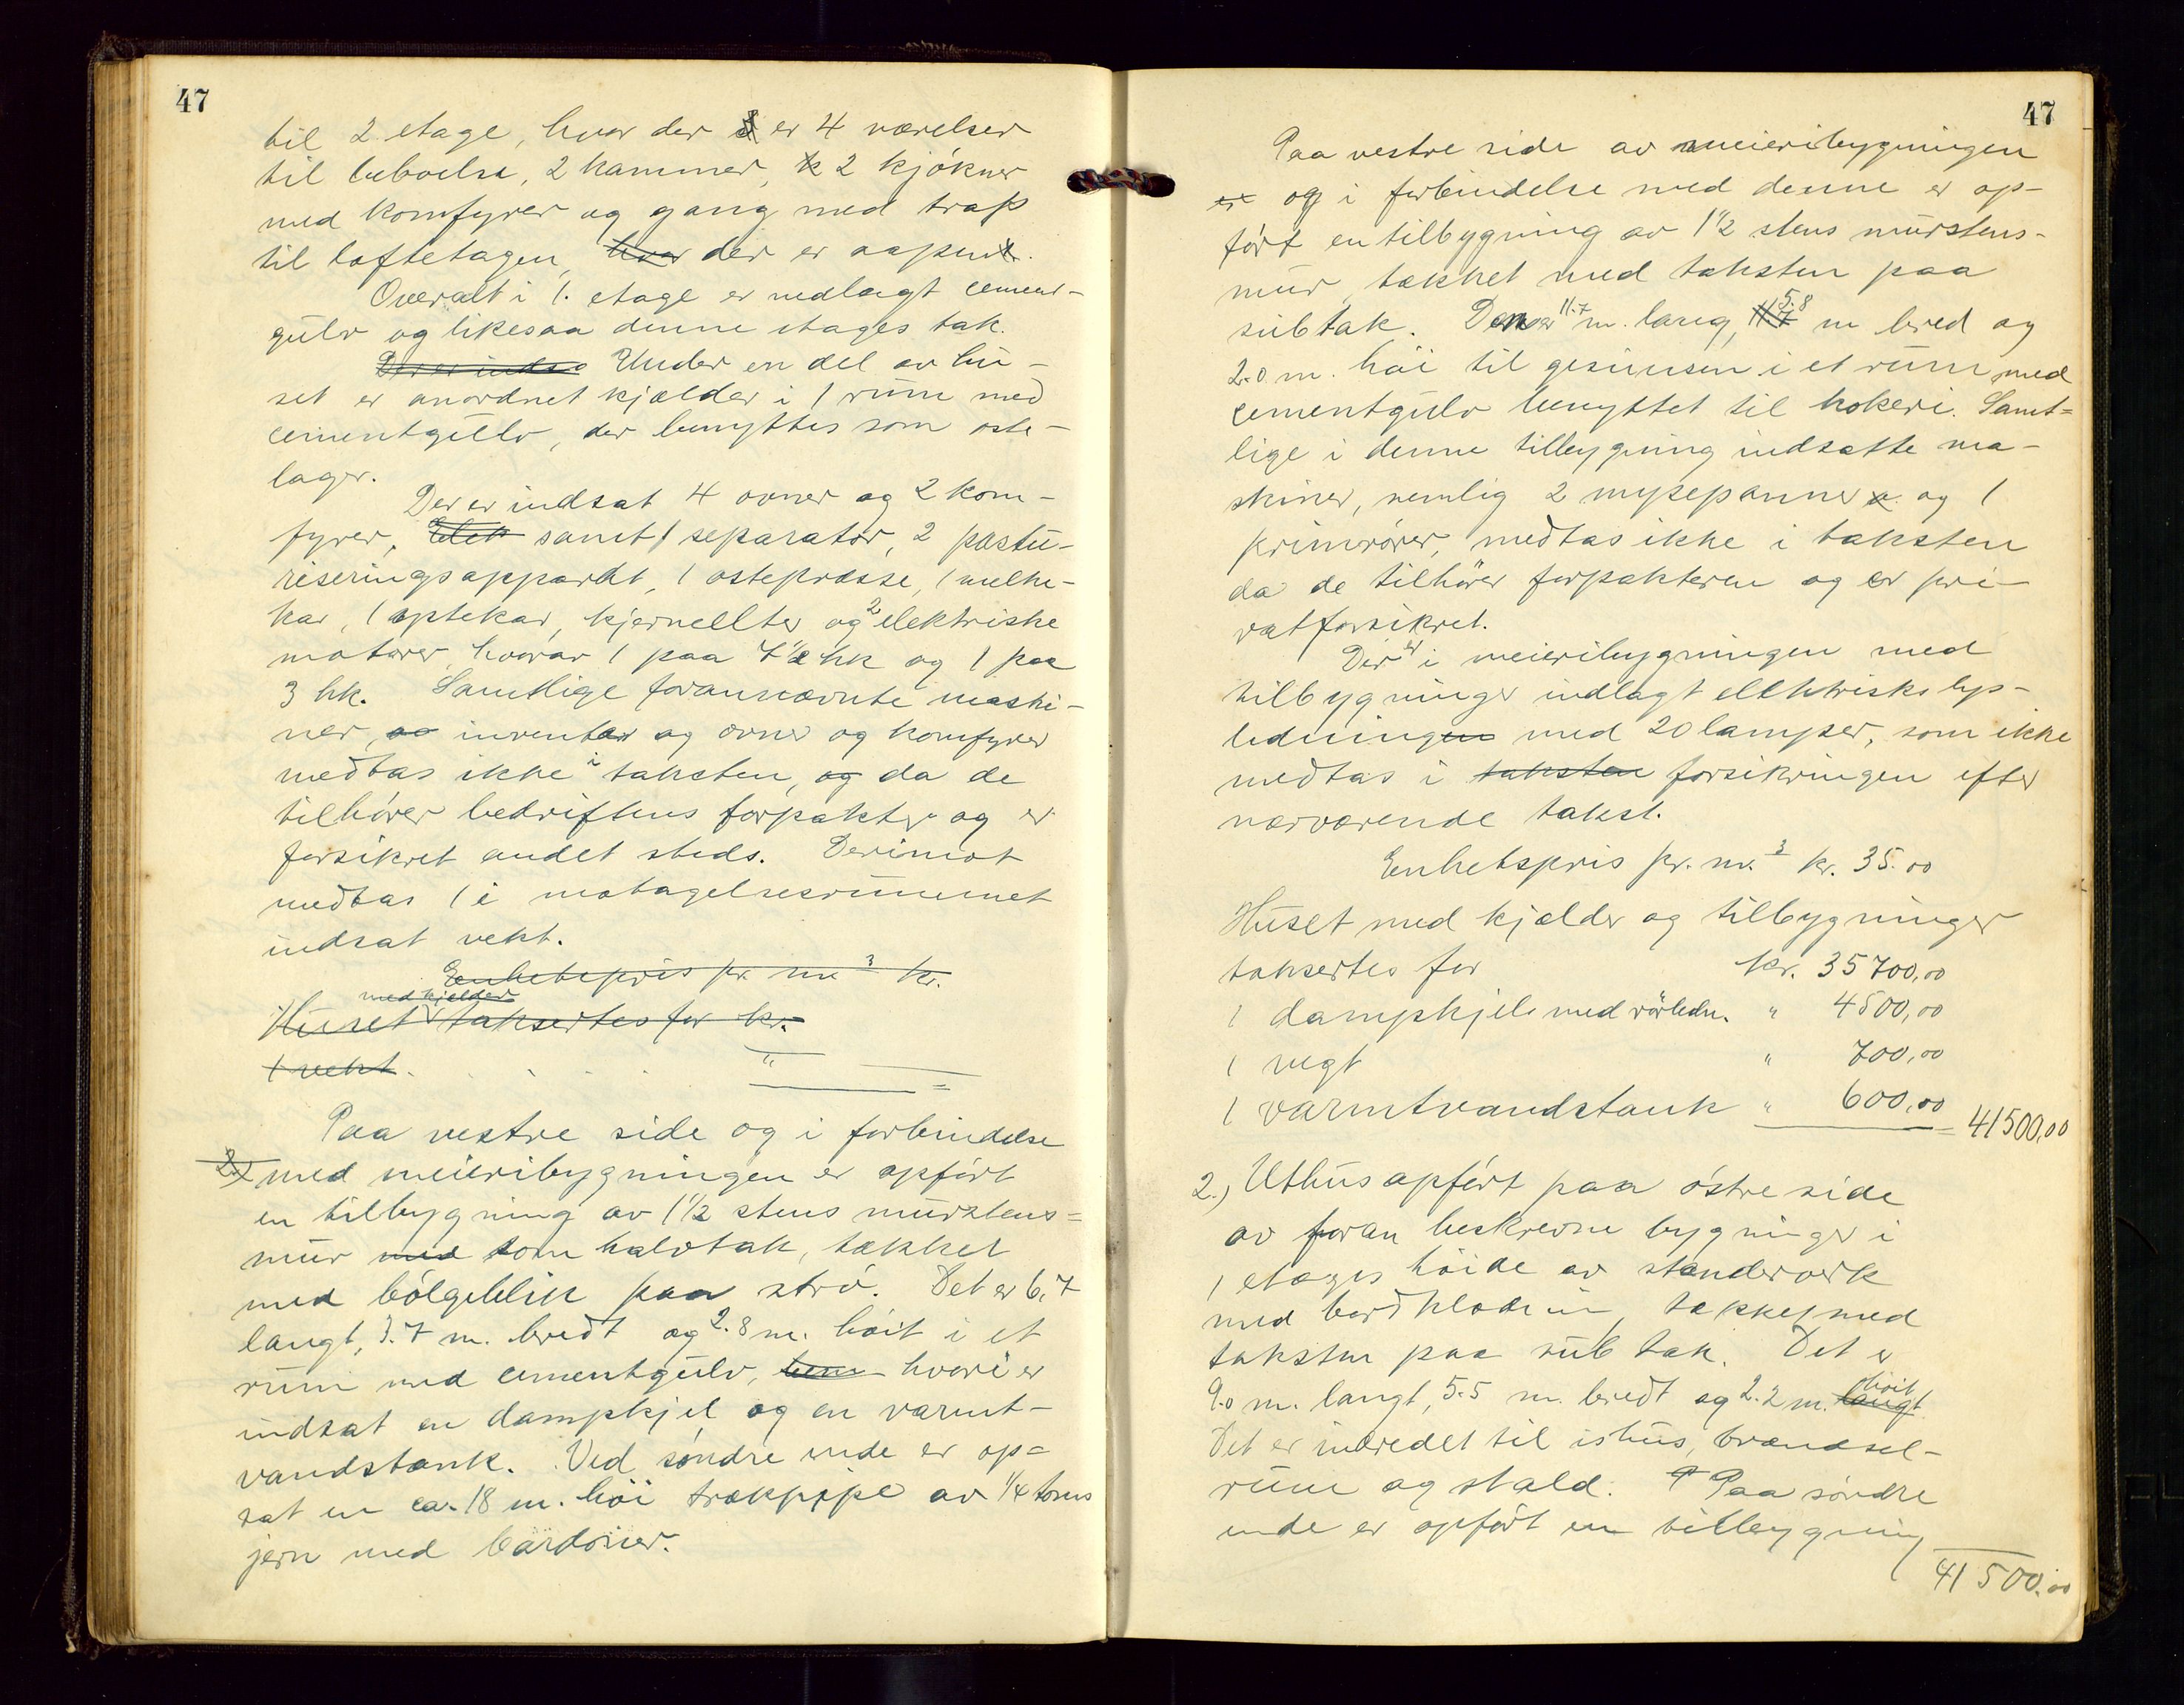 47
til 2 etage, hvor der er 4 værelser
til beboelse, 2 kammer, 2 kjøkner
med komfyrer og gang med trap
til loftetagen, hvor der er aapent.
Overalt i 1. etage er nedlagt cement-
gulv og likesaa denne etages tak.
Der er indsa Under en del av hu-
set er anordnet kjælder i 1 rum med
cementgulv, der benyttes som oste-
lager.
Der er indsat 4 ovner og 2 kom-
fyrer, Elek samt 1 separator, 2 pastu-
riseringsapparat, 1 ostepresse, 1 melke-
kar, 1 ystekar, kjerneelter og 2 elektriske
motorer, hvorav 1 paa 7 1/2 hk og 1 paa
3 hk. Samtlige forannævnte maski-
ner, inventar og ovner og komfyrer
medtas ikke i taksten, og da de
tilhører bedriftens forpakter og er
forsikret andet steds. Derimot
medtas 1 i motagelsesrummet
indsat vekt.
Enhetspris pr. m³ kr.
Huset med kjelder taksertes for kr.
1 vekt . . . . "
Paa vestre side og i forbindelse
2.) med meieribygningen er opført
en tilbygning av 1 1/2 stens murstens=
mur med som halvtak, tækket
med bølgeblik paa strø. Det er 6,7
langt, 3.7 m. bredt og 2.8 m. høit i et
rum med cementgulv, hvori er
indsat en dampkjel og en varmt-
vandstank. Ved søndre ende er op=
sat en ca. 18 m. høi trækpipe av 1/4 toms
jern med barduner.
47
Paa vestre side av meieribygningen
er og i forbindelse med denne er op-
ført en tilbygning av 1 1/2 stens murstens-
mur, tækket med taksten paa
subtak. Den er 11.7 m. lang, 11.7 5.8 m bred og
2.0 m. høi til gesimsen i et rum med
cementgulv benyttet til kokeri. Samt=
lige i denne tilbygning indsatte ma-
skiner, nemlig 2 mysepanner og 1
primrører, medtas ikke i taksten
da de tilhører forpakteren og er pri-
vatforsikret.
Der er i meieribygningen med
tilbygninger indlagt elektriske lys-
ledningen med 20 lamper, som ikke
medtas i taksten forsikringen efter
nærværende takst.
Enhetspris pr. m.³ kr. 35.00
Huset med kjælder og tilbygninger
taksertes for kr. 35700,00
1 dampkjele med rörledn. " 4500,00
1 vegt " 700,00
1 varmtvandstank " 600,00 = 41500,00
2.) Uthus opført paa østre side
av foran beskrevne bygninger i
1 etages høide av stenderverk
med bordklædning, tækket med
taksten paa subtak. Det er
9.0 m. langt, 5.5 m. bredt og 2.2 m. langt høit
Det er inredet til ishus, brændsel-
rum og stald. Paa søndre
ende er opført en tilbygning
41500.00